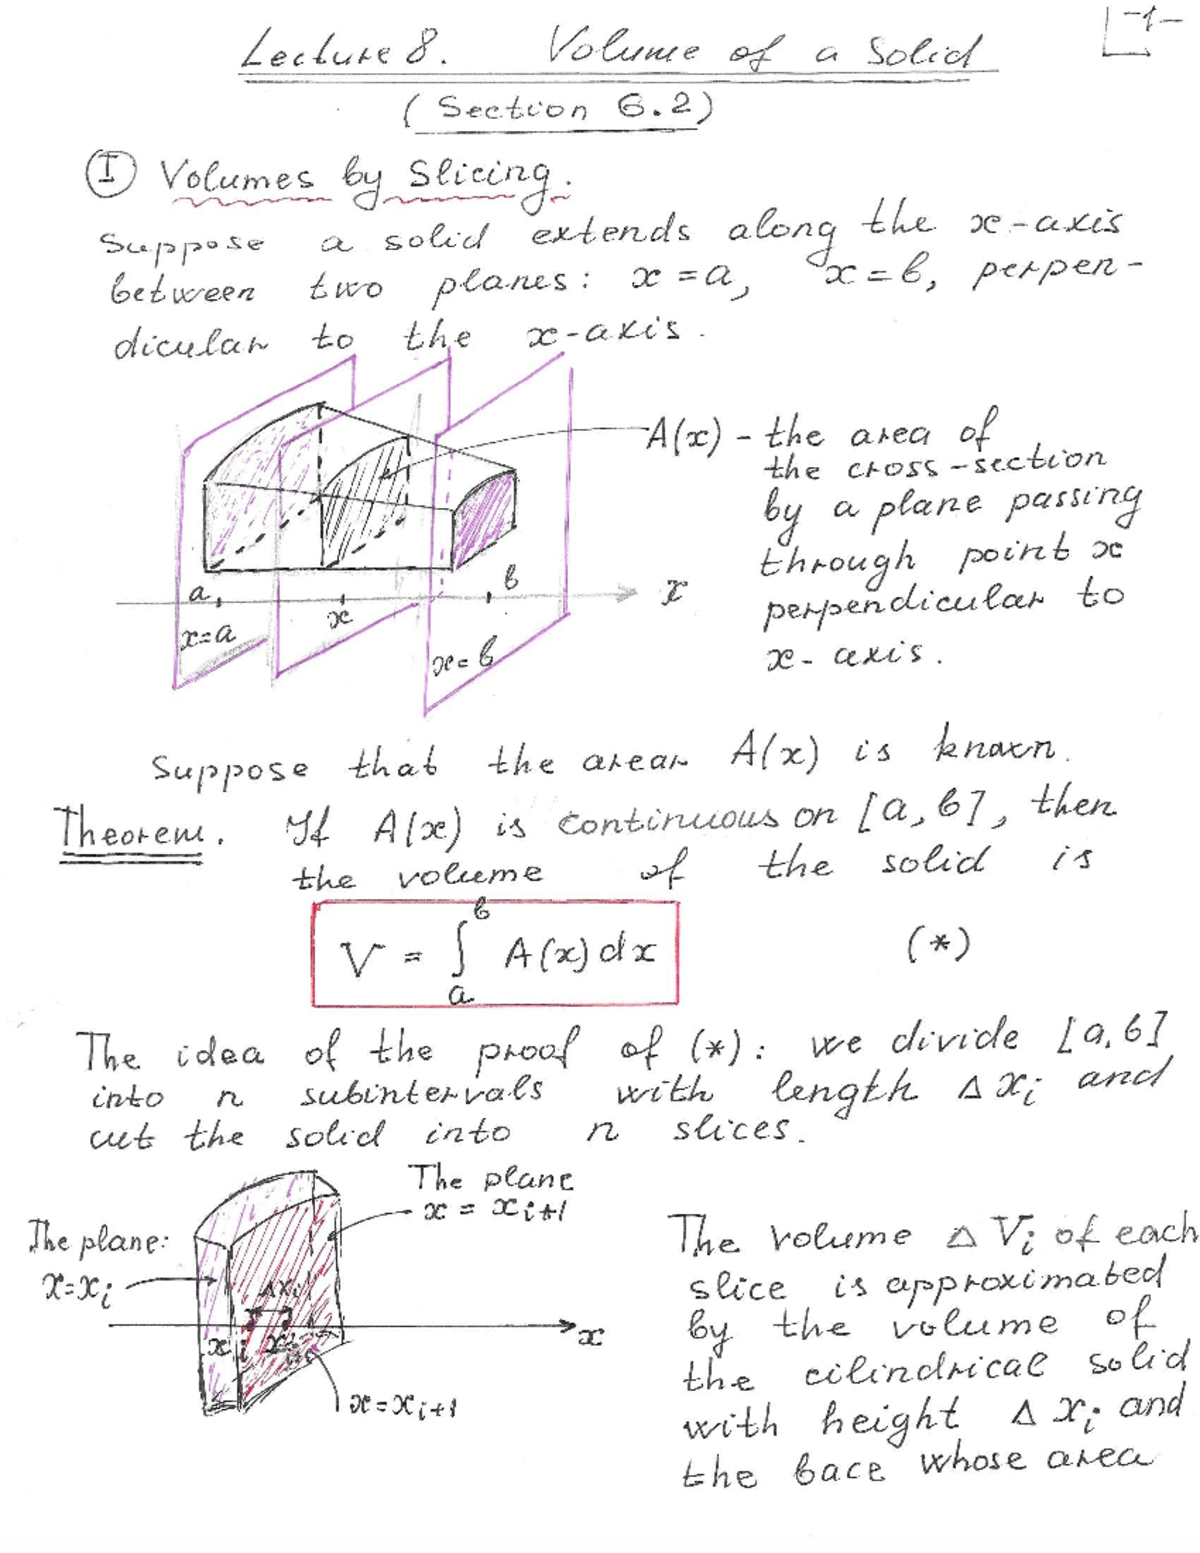 -1-
Lecture 8. Volume of a Solid
(Section 6.2)
I Volumes by Slicing.
Suppose a solid extends along the x-axis
between two planes: x = a, x = b, perpen-
dicular to the x-axis.
A(x) - the area of
the cross-section
by a plane passing
through point x
perpendicular to
x-axis.
a x b x
x=a
x=b
Suppose that the area A(x) is known.
Theorem. If A(x) is continuous on [a, b], then
the volume of the solid is
V = ∫ₐᵇ A(x) dx (*)
The idea of the proof of (*): we divide [a, b]
into n subintervals with length Δxᵢ and
cut the solid into n slices.
The plane
x = xᵢ₊₁
The plane:
x=xᵢ
Δxᵢ
xᵢ xᵢ₊₁ x
x=xᵢ₊₁
The volume ΔVᵢ of each
slice is approximated
by the volume of
the cilindrical solid
with height Δxᵢ and
the bace whose area